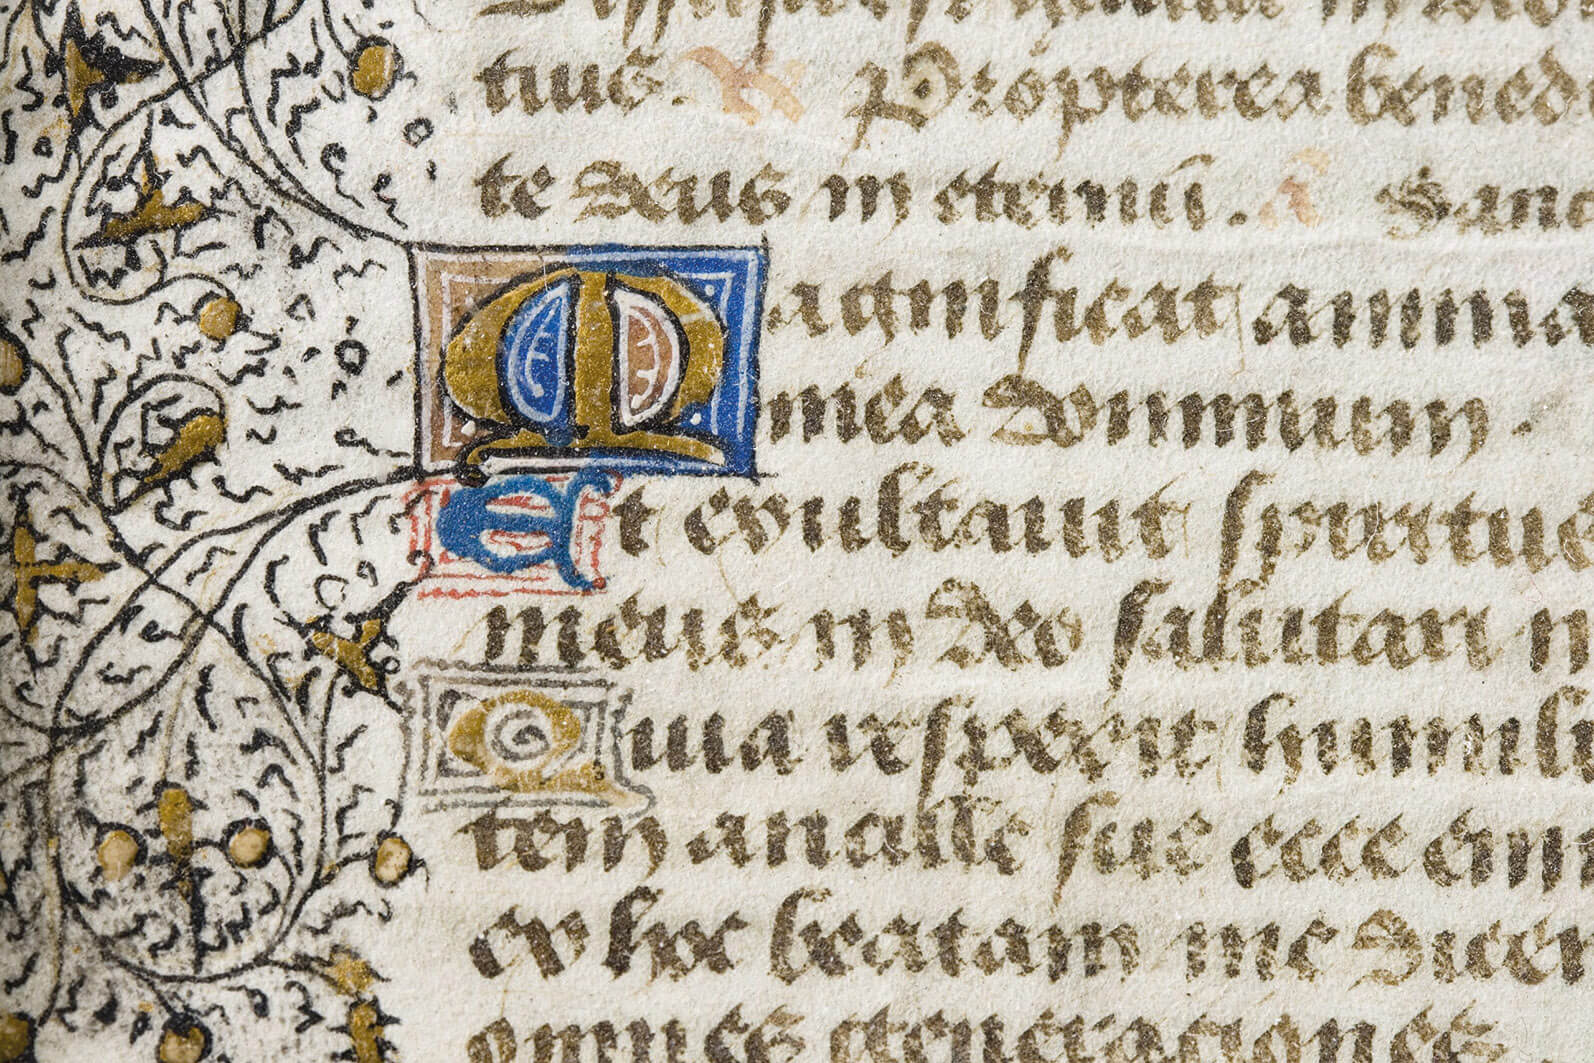 tuis. V Propterea bened
te deus in eternũ. A Sanc
Magnificat anima
mea dominum.
Et exultauit spiritus
meus in deo salutari m
Quia respexit humili
tem ancille sue ecce enim
ex hoc beatam me dicen
omnes generaciones